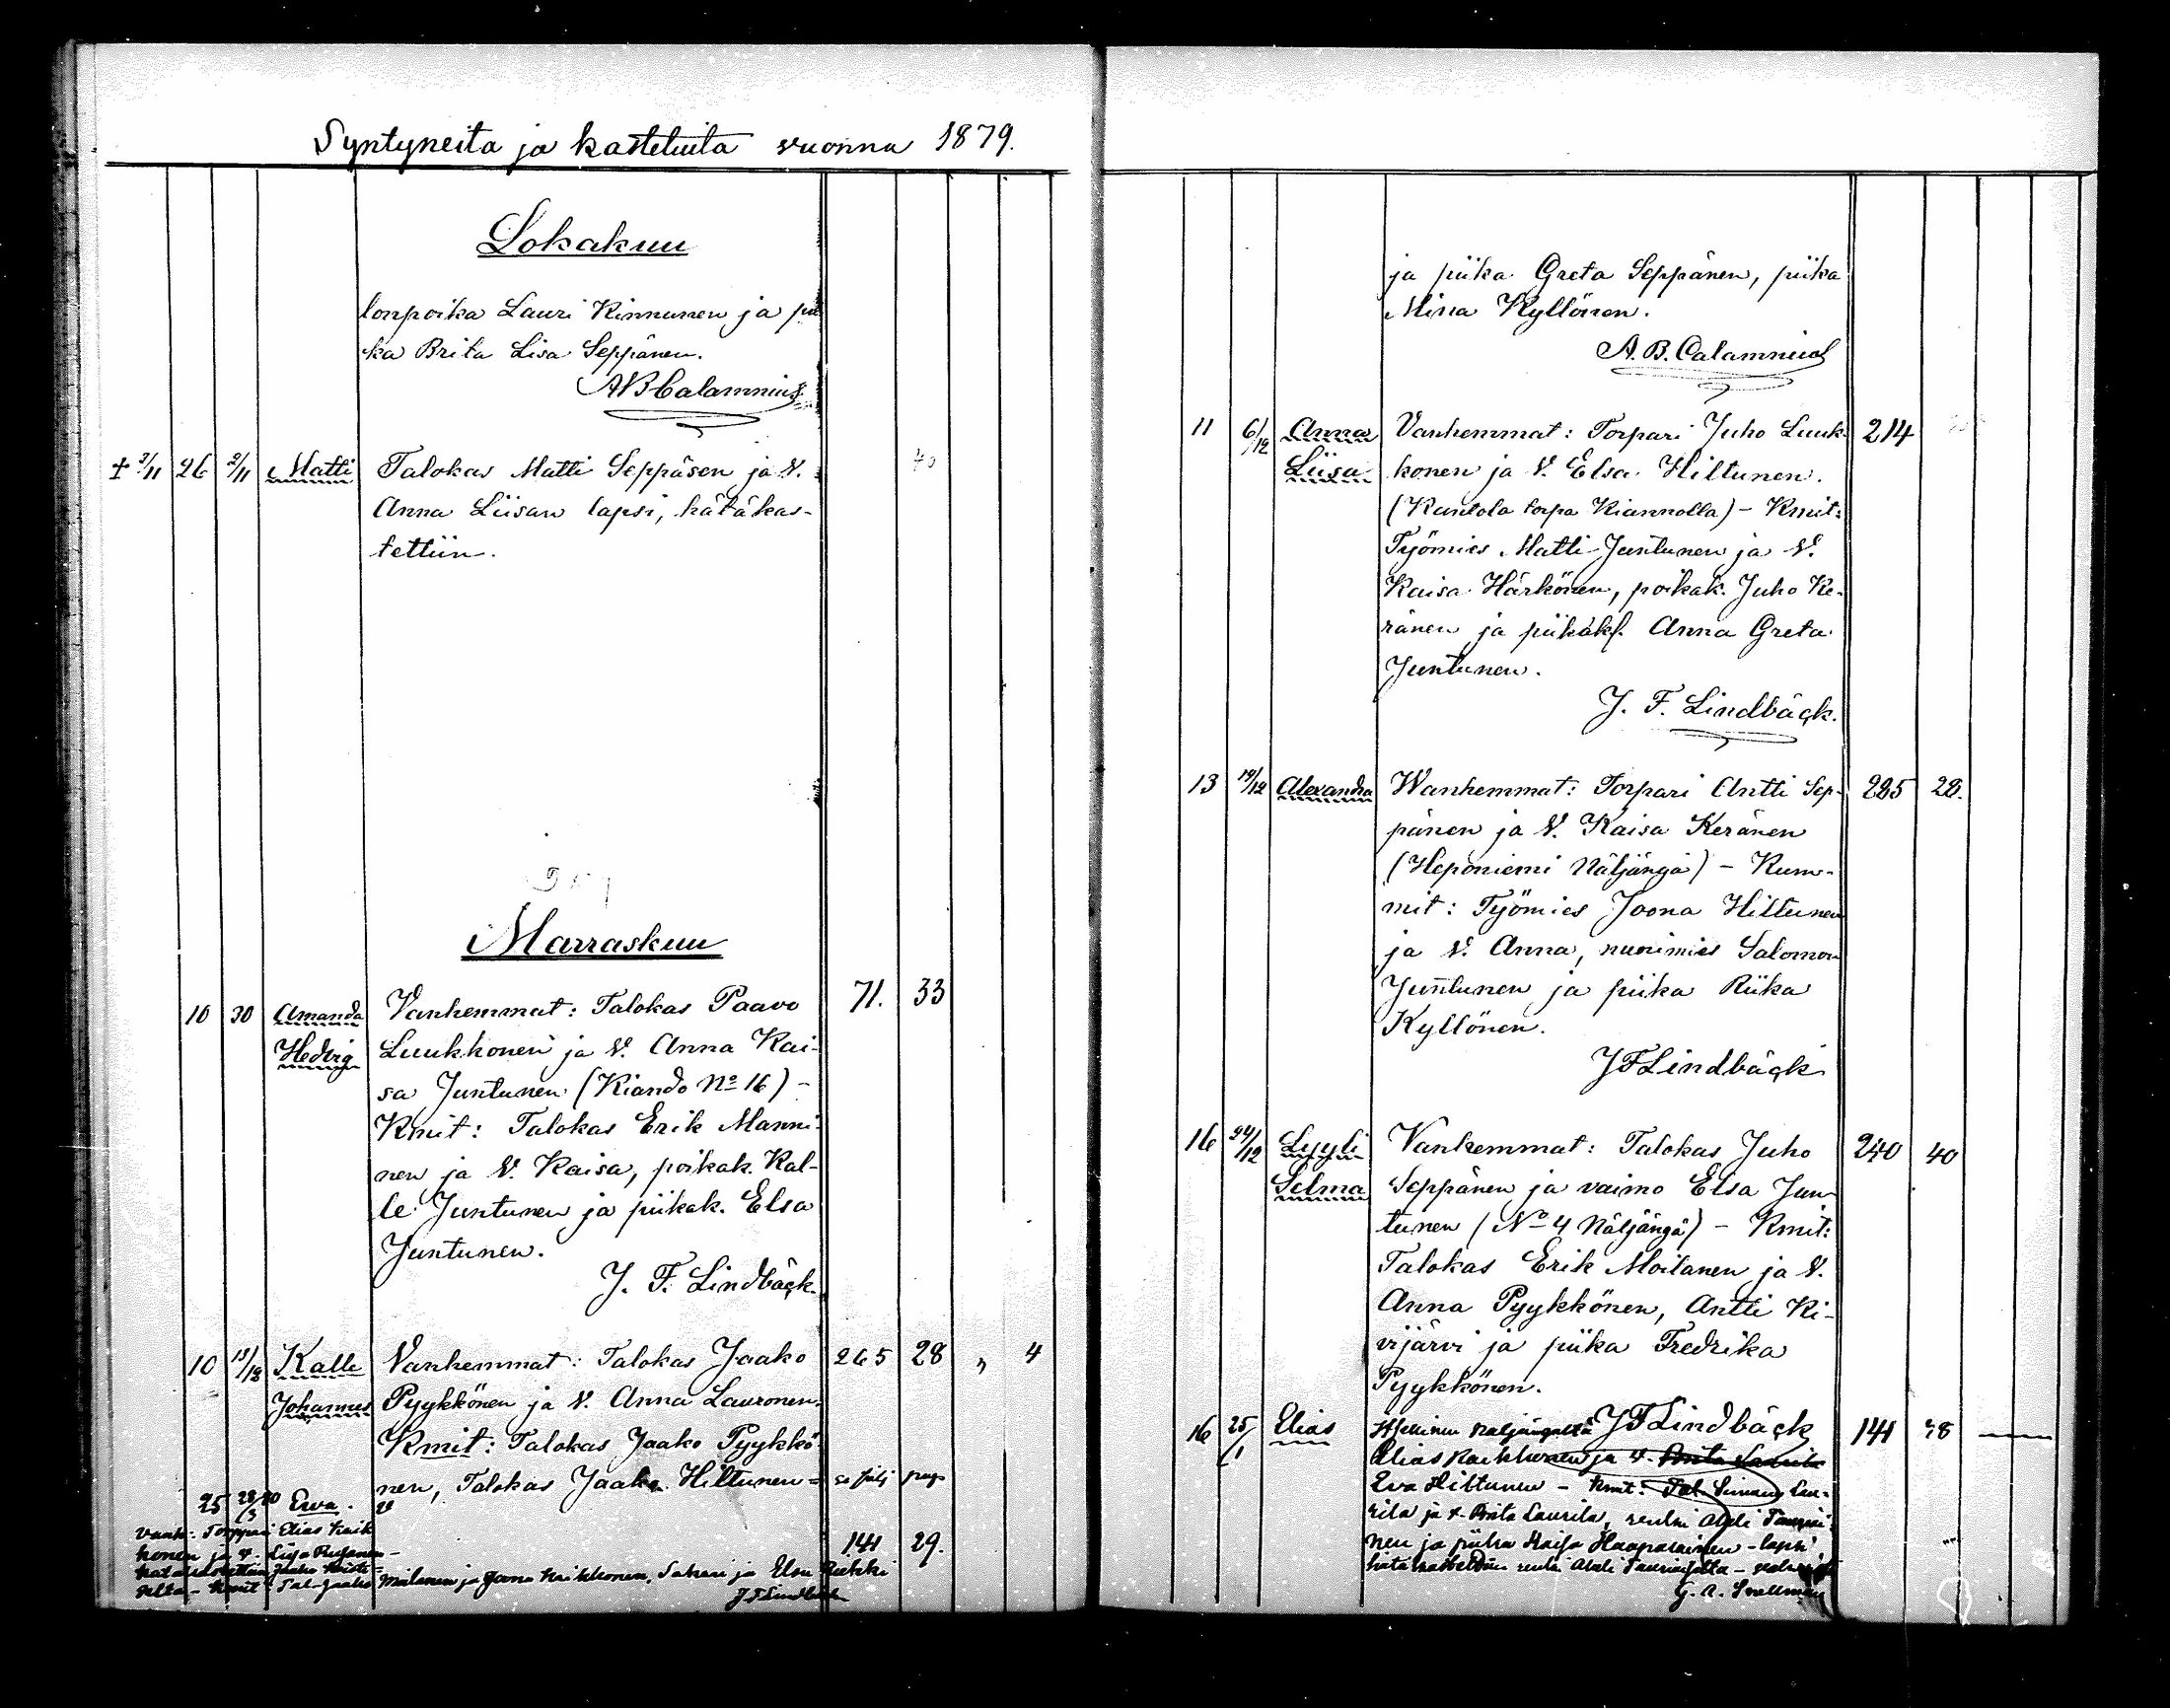 Syntyneita ja kastetuita vuonna 1879.
Lokakuu
lonpoika Lauri Kinnunen ja pii
ka Brita Lisa Seppänen.
AB Calamnius
† 2/11 26 2/11 Matti Talokas Matti Seppäsen ja V. 40
Anna Liisan lapsi, hätäkas-
tettiin.
Marraskuu
10 30 Amanda Vanhemmat: Talokas Paavo 71. 33
Hedvig Luukkonen ja V. Anna Kai-
sa Juntunen (Kiando No 16) -
Kmit: Talokas Erik Manni-
nen ja V. Kaisa, poikak. Kal-
le Juntunen ja piikak. Elsa
Juntunen.
J. F. Lindbäck.
10 13/12 Kalle Vanhemmat: Talokas Jaako 265 28 " 4
Johannes Pyykkönen ja V. Anna Lauronen.
Kmit: Talokas Jaako Pyykkö-
nen, Talokas Jaako Hiltunen =
25 28/3 80 Ewa.
Vanh: Torppari Elias Kaik 141 29.
konen ja v. Liisa
Kmit: Tal. Jaako Moilanen ja Joona Kaikkonen, Sakari ja Elsa
J F Lindbäck
ja piika Greta Seppänen, piika
Mina Kyllönen.
A. B. Calamnius
11 6/12 Anna Vanhemmat: Torpari Juho Luuk- 214
Liisa konen ja V. Elsa Hiltunen.
(Kantola torpa Kiannolla) - Kmit:
Työmies Matti Juntunen ja V.
Kaisa Härkönen, poikak. Juho Ke-
ränen ja piikak. Anna Greta
Juntunen.
J. F. Lindbäck.
13 19/12 Alexandra Wanhemmat: Torpari Antti Sep- 225 28.
pänen ja V. Kaisa Keränen
(Heponiemi Näljängä) - Kum-
mit: Työmies Joona Hiltunen
ja V. Anna, nuorimies Salomon
Juntunen ja piika Riika
Kyllönen.
JFLindbäck
16 24/12 Lyyli Vanhemmat: Talokas Juho 240 40
Selma Seppänen ja vaimo Elsa Jun-
tunen (No 4 Näljängä) - Kmit:
Talokas Erik Moilanen ja V.
Anna Pyykkönen, Antti Ki-
vijärvi ja piika Fredrika
Pyykkönen.
JFLindbäck
16 25/1 Elias Itsellinen Näljängältä 141 48
Elias Kaikkonen ja v. Brita Laurila
Eva Hiltunen - Kmit: Tal. Simana Lau-
rila ja v. Brita Laurila, renki Abeli Tauriai-
nen ja piika Kaisa Haapalainen - lapsi
hätäkastettiin renki Abeli Tauriaiselta -
G. A. Snellman